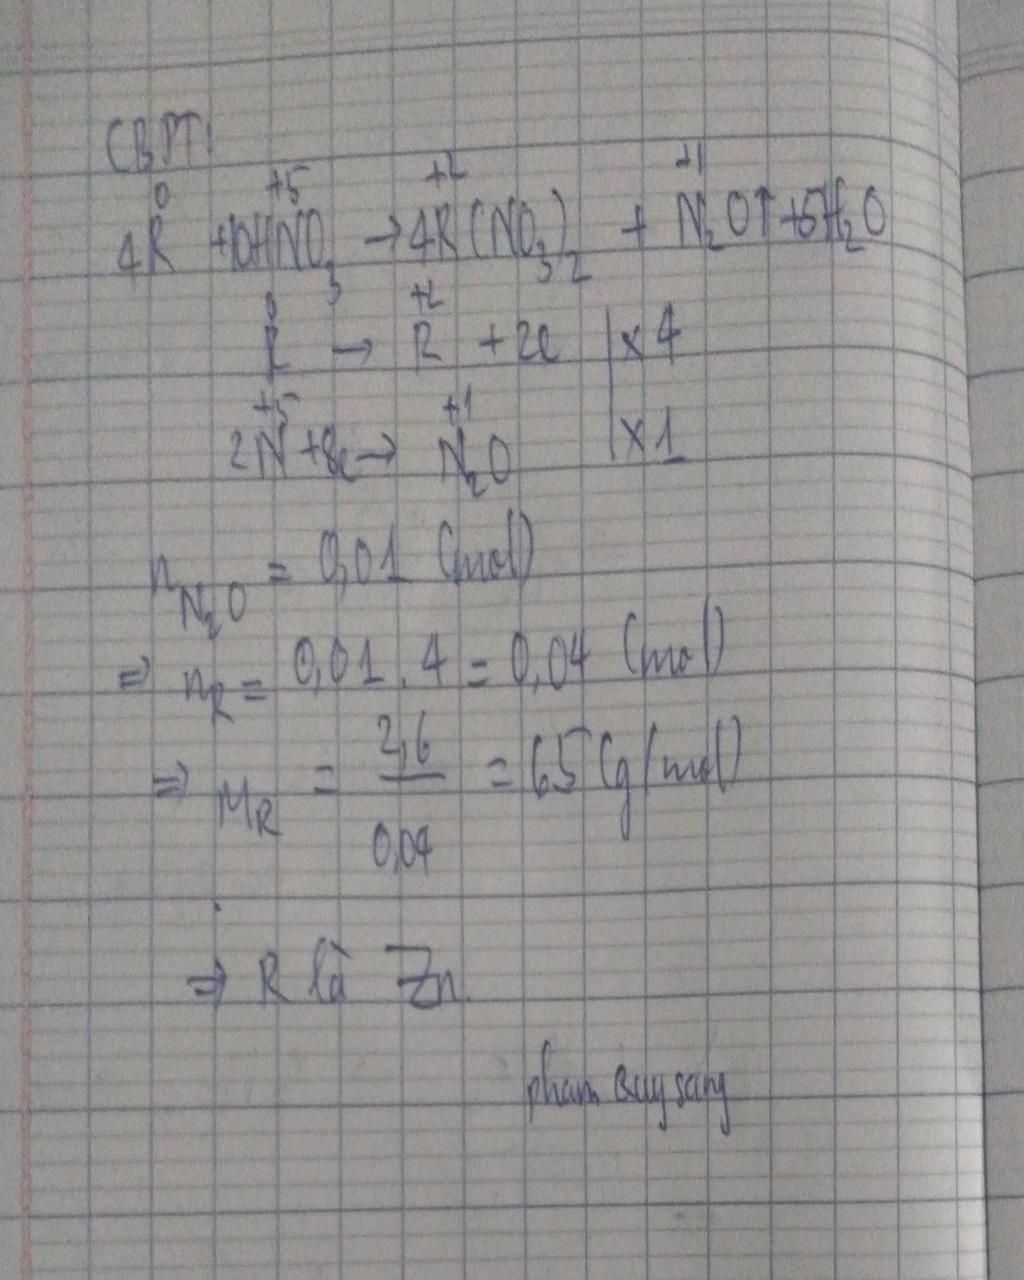 CBPT!
0 +5 +2 +1
4R + 10HNO3 → 4R(NO3)2 + N2O↑ + 5H2O
0 +2
R → R + 2e | x 4
+5 +1
2N + 8e → N2O | x 1
nN2O = 0,01 (mol)
⇒ nR = 0,01 . 4 = 0,04 (mol)
⇒ MR = 2,6 / 0,04 = 65 (g/mol)
⇒ R là Zn.
pham Quy sang